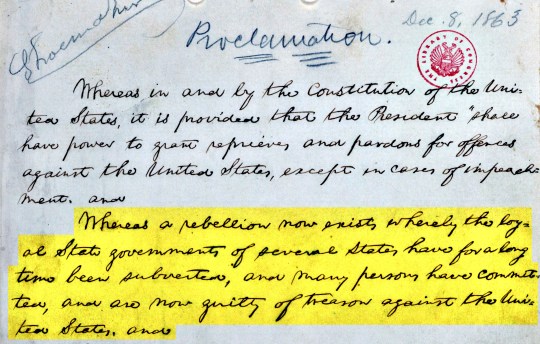 Dec. 8, 1863
Proclamation.
THE LIBRARY OF CONGRESS
Whereas in and by the Constitution of the Uni-
ted States, it is provided that the President "shall
have power to grant reprieves and pardons for offences
against the United States, except in cases of impeach-
ment. and
Whereas a rebellion now exists whereby the loy-
al State governments of several States have for a long
time been subverted, and many persons have commit-
ted, and are now guilty of treason against the Uni-
ted States. and